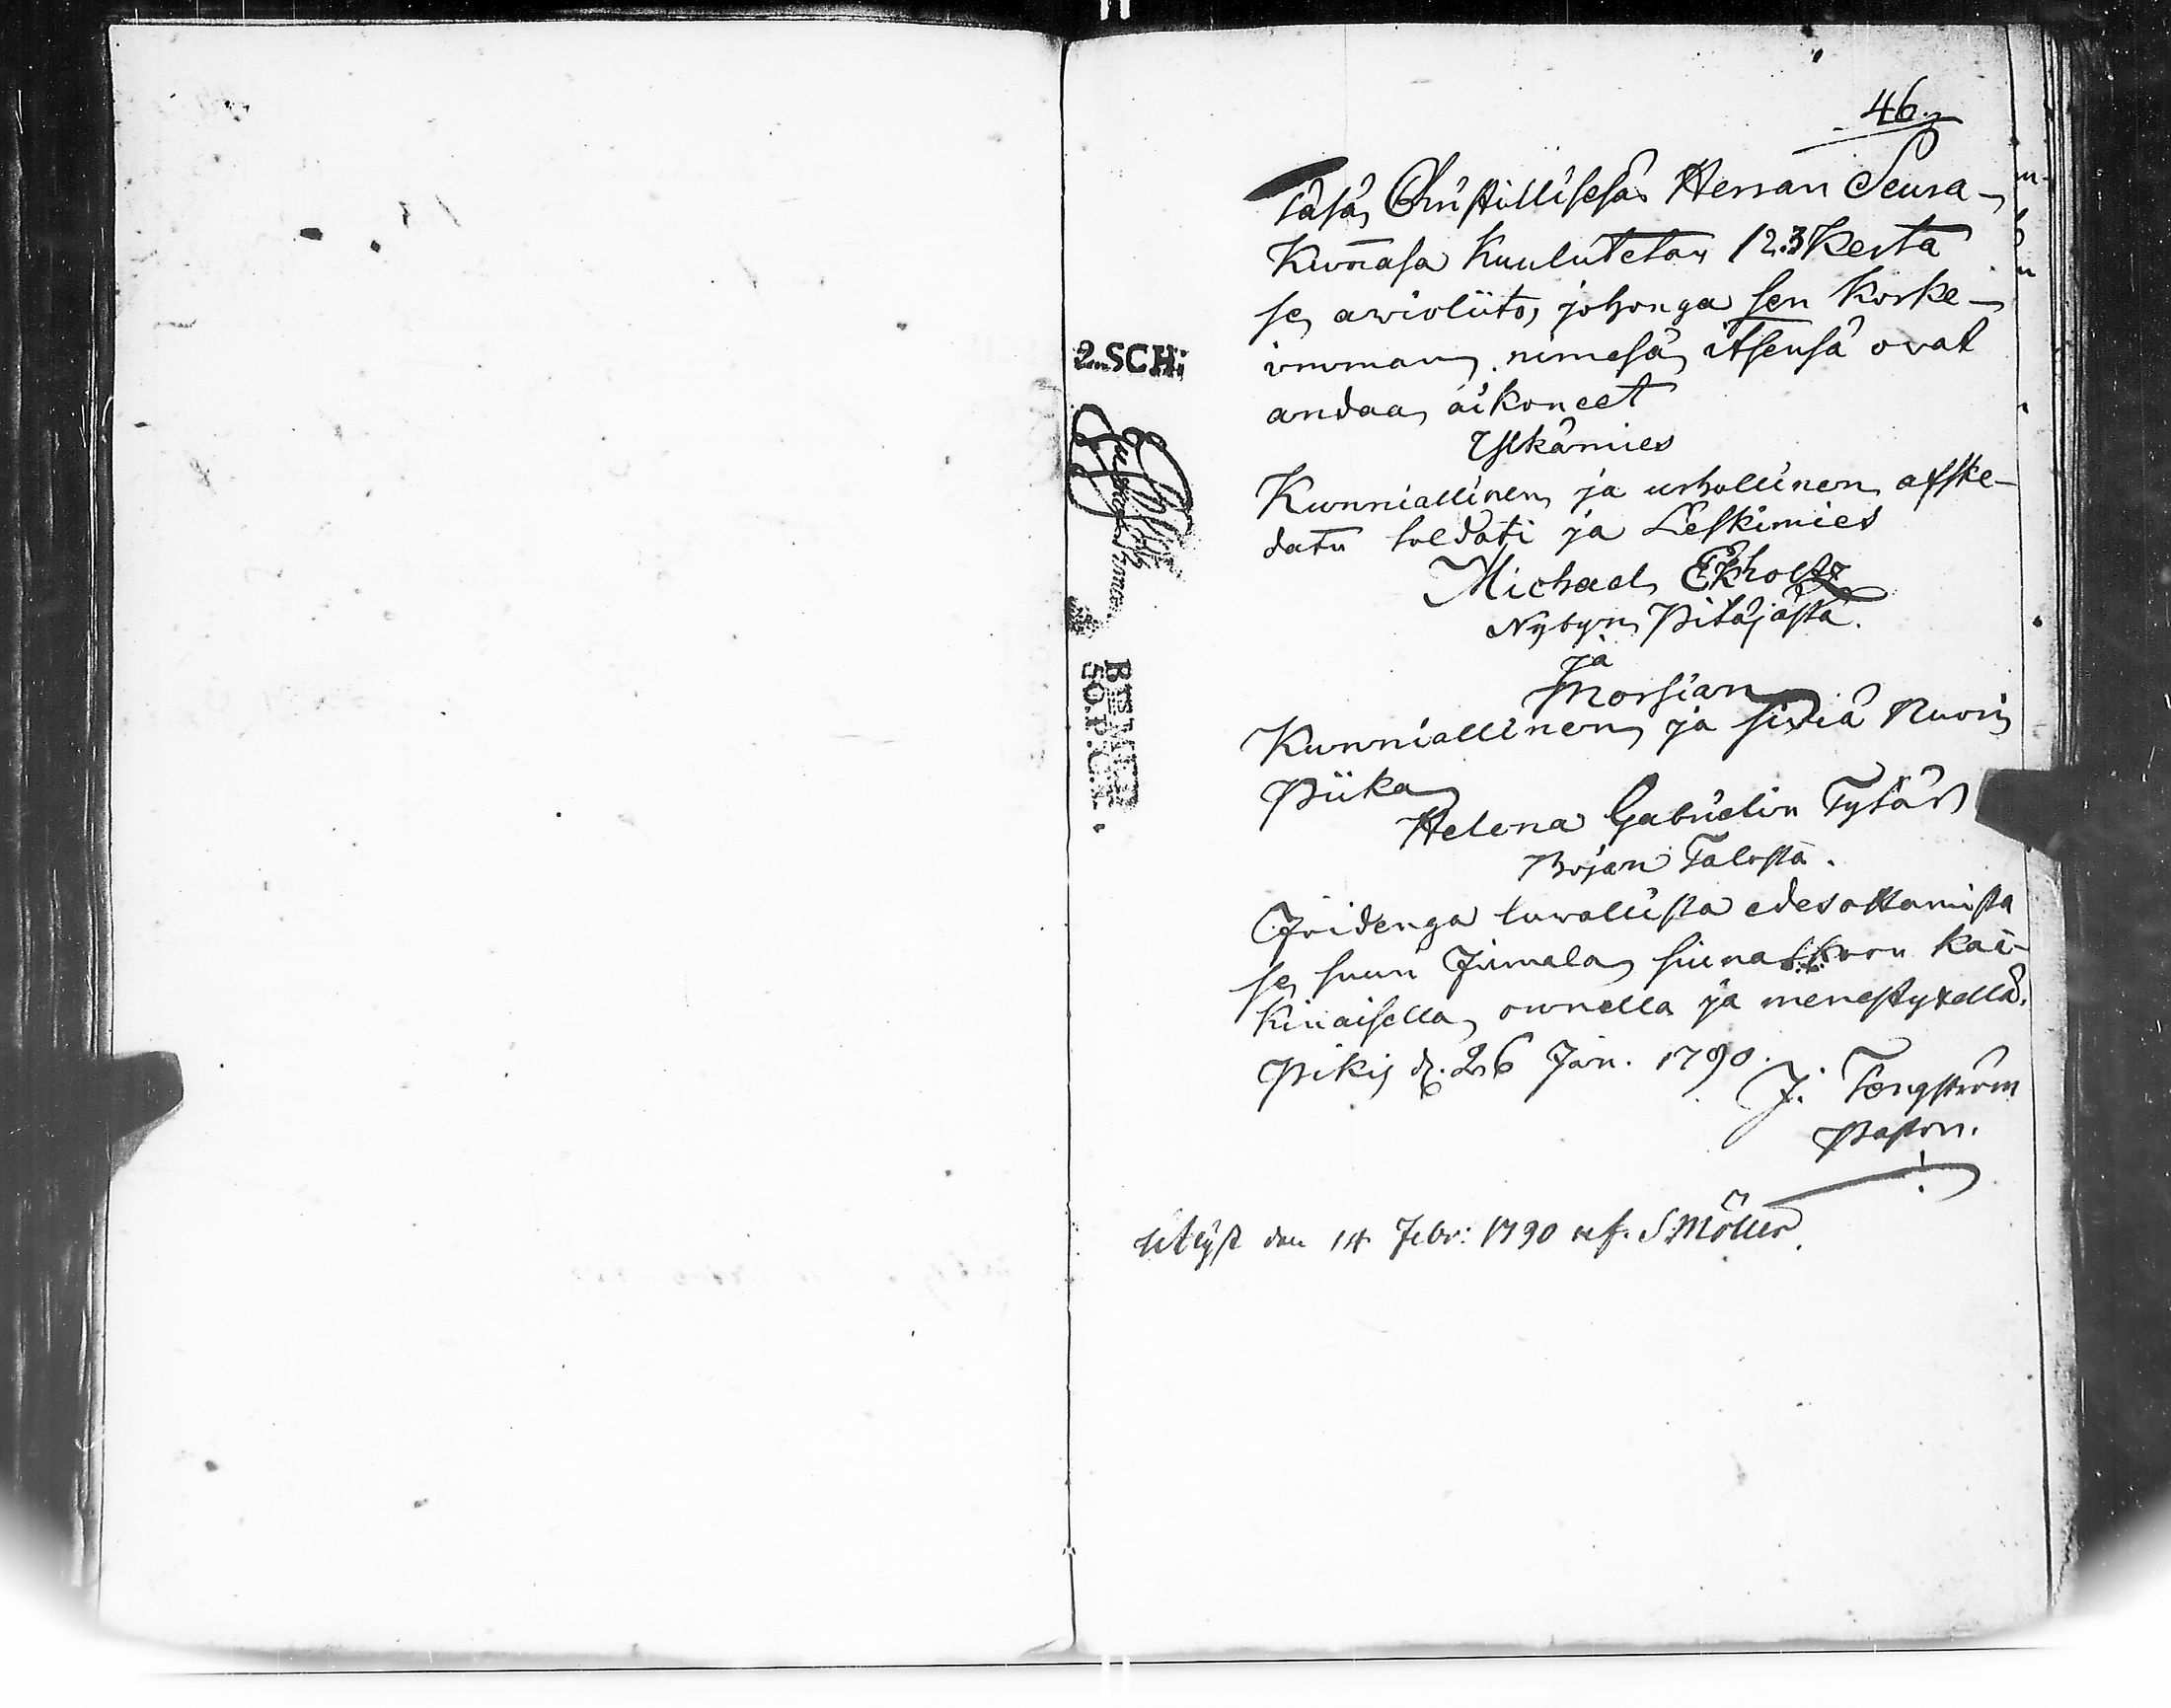 46.
Täsä Christillisesä Herran Seura-
Kunnasa Kuulutetan 1 2. 3 Kerta
se, awioliito, johonga sen Korke-
imman, nimesä, itsensä ovat
andaa, aikoneet
Yljkämies
Kunniallinen, ja urhollinen afske-
datu soldati ja Leskimies
Michael, Ekholtz
Nybyn Pitäjästä.
ja
Morsian
Kunniallinen, ja siviä Nuori
Piika
Helena Gabrielin Tytär
Bojan Talosta.
Joidenga luwallista edesottamista
se, suuri Jumala, siunatkoon kai-
kinaisella, onnella ja menestyxellä.
Pikis d. 26 Jan. 1790.
J. Tengström
Pastor.
Utlyst den 14 Febr: 1790 af. S. Möller.
2. SCH:
50. P. C.